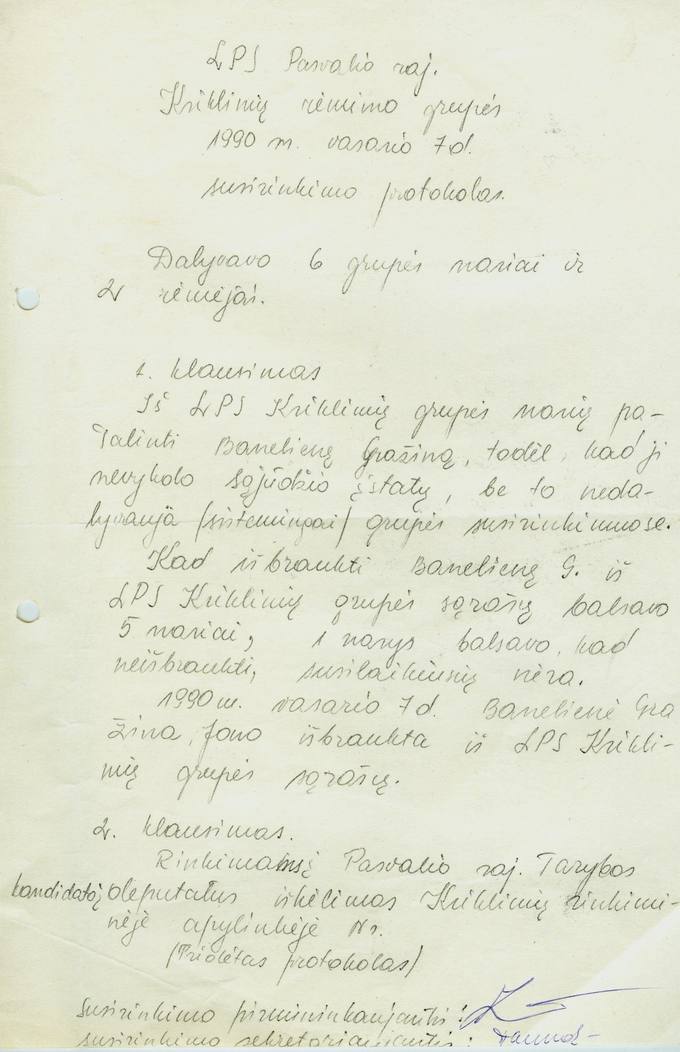 LPS Pasvalio raj.
Kriklinių rėmimo grupės
1990 m. vasario 7 d.
susirinkimo protokolas.
Dalyvavo 6 grupės nariai ir
2 rėmėjas.
1. klausimas
Iš LPS Kriklinių grupės narių pa-
šalinti Banelienę Gražiną, todėl, kad ji
nevykdo sąjūdžio įstatų, be to neda-
lyvauja (sistemingai) grupės susirinkimuose.
Kad išbraukti Banelienę G. iš
LPS Kriklinių grupės sąrašų balsavo
5 nariai, 1 narys balsavo, kad
neišbraukti, susilaikiusių nėra.
1990 m. vasario 7 d. Banelienė Gra
žina, Jono išbraukta iš LPS Krikli-
nių grupės sąrašų.
2. klausimas.
Pasvalio raj. Tarybos
kandidatų deputatus iškėlimas Kriklinių rinkimi-
nėje apylinkėje Nr.
(Pridėtas protokolas)
Susirinkimo pirmininkaujantis:
susirinkimo sekretoriaujantis: